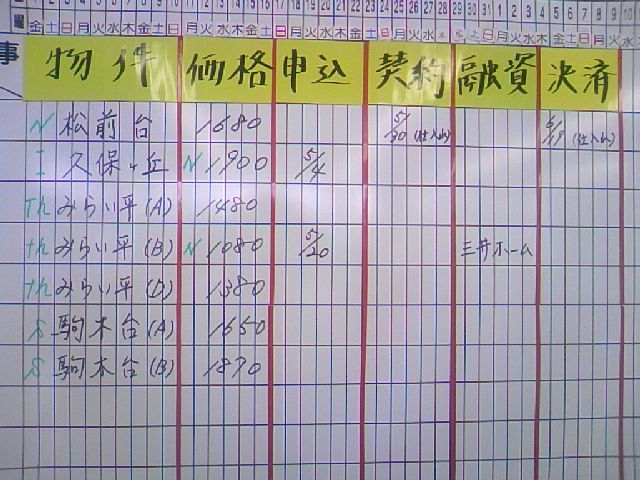 金土日月火水木金土日月火水木金土日月火水木金土日月火水
事 物件 価格 申込 契約 融資 決済
N 松前台 1680 5/30 (仕入れ) 6/19 (仕入れ)
I 久保ヶ丘 N 1900 5/4
Th みらい平(A) 1480
Th みらい平(B) N 1080 5/20 三井ホーム
Th みらい平(D) 1380
S 駒木台(A) 1650
S 駒木台(B) 1870